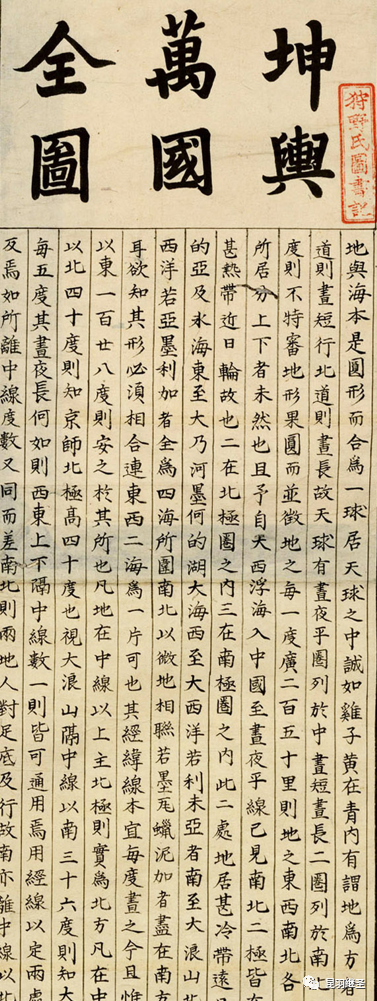 坤輿
萬國
全圖
狩野氏圖書記
地與海本是圓形而合爲一球居天球之中誠如雞子黃在青內有謂地爲方者
道則晝短行北道則晝長故天球有晝夜平圈列於中晝短晝長二圈列於南
度則不特審地形果圓而並徵地之每一度廣二百五十里則地之東西南北各
所居分上下者未然也且予自大西浮海入中國至晝夜平線已見南北二極皆在
甚熱帶近日輪故也二在北極圈之內三在南極圈之內此二處地居甚冷帶遠
的亞及氷海東至大乃河墨何的湖大海西至大西洋若利未亞者南至大浪山北
西洋若亞墨利加者全爲四海所圍南北以微地相聯若墨瓦蠟泥加者盡在南方
耳欲知其形必須相合連東西二海爲一片可也其經緯線本宜每度畫之今且惟
以東一百廿八度則安之於其所也凡地在中線以上主北極則實爲北方凡在中
以北四十度則知京師北極高四十度也視大浪山隔中線以南三十六度則知大
每五度其晝夜長何如則西東上下隔中線數一則皆可通用焉用經線以定兩處
及焉如所離中線度數又同而差南北則兩地人對足底及行故南亦離中線以北
昆羽继圣